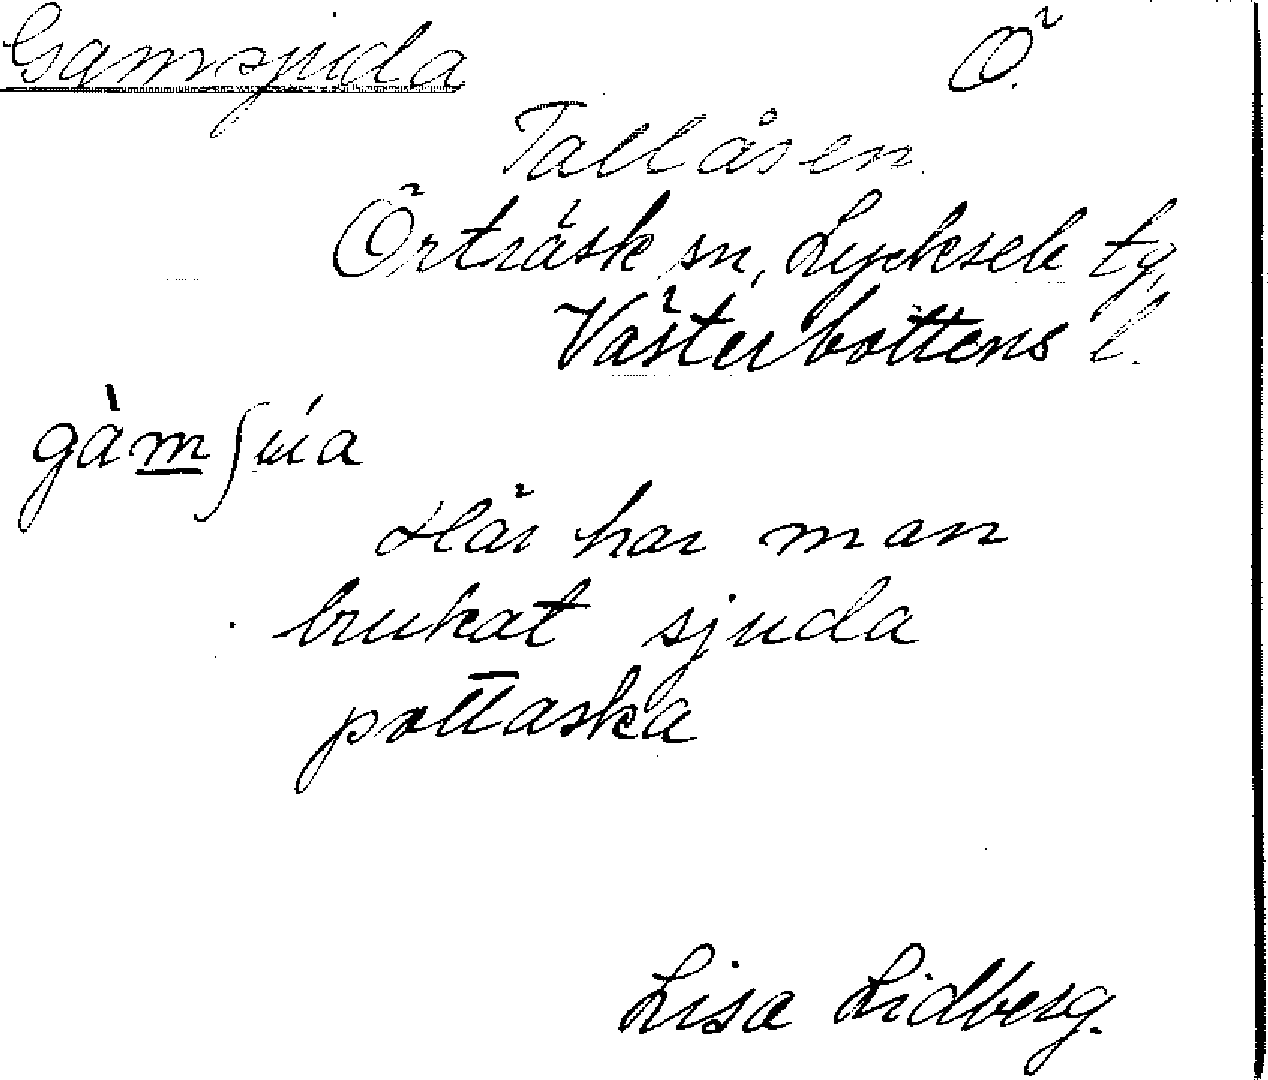 Gamsjuda Ö.
Tallåsen.
Örträsk sn, Lycksele tg,
Västerbottens l.
gàmʃúa
Här har man
brukat sjuda
pottaska
Lisa Lidberg.